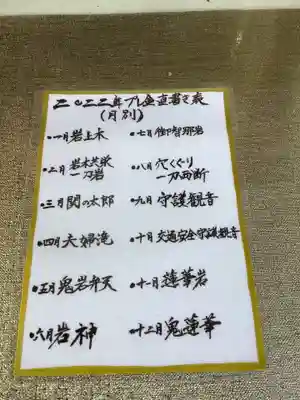 二〇二二年プレ金直書き表
(月別)
・一月岩上木
・二月岩木共敬
一刀岩
・三月関の太郎
・四月夫婦滝
・五月鬼岩弁天
・六月岩神
・七月御智那岩
・八月穴くぐり
一刀両断
・九月守護観音
・十月交通安全守護観音
・十一月蓮華岩
・十二月鬼蓮華